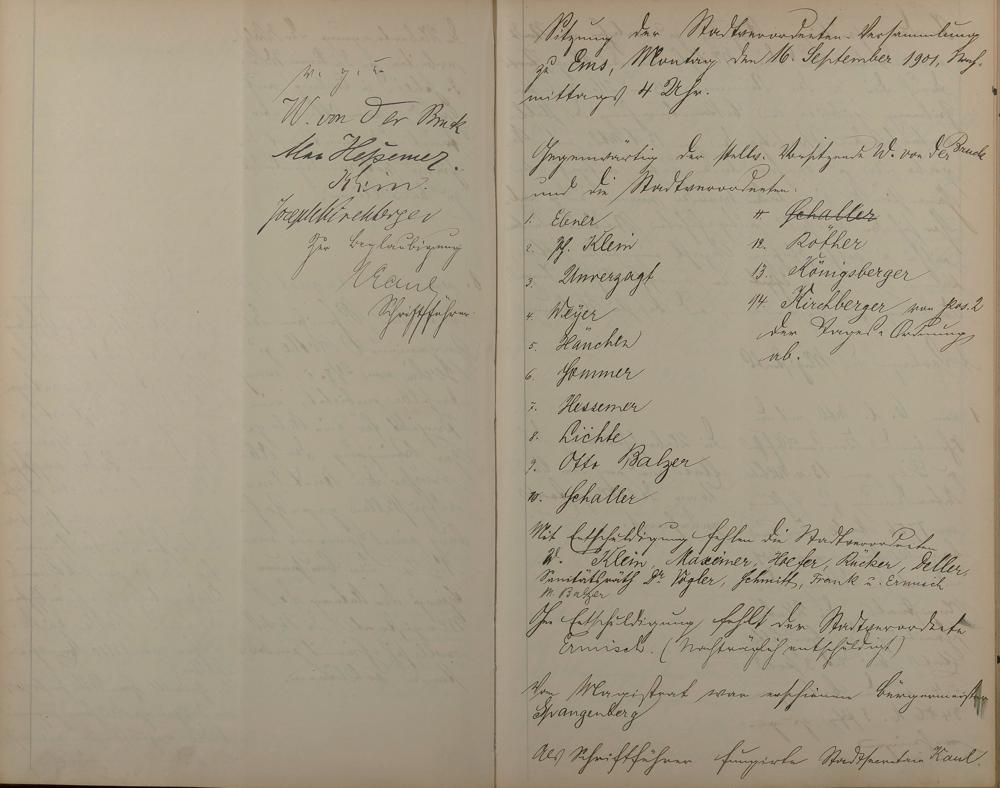 v. g. u.
W. von der Bruck
Max Hessemer.
Klein.
Joseph Kirchberger
Zur Beglaubigung
Kaul
Schriftführer
Sitzung der Stadtverordneten-Versammlung
zu Ems, Montag den 16. September 1901, Nach-
mittags 4 Uhr.
Gegenwärtig der stellv. Vorsitzende W. von der Bruck
und die Stadtverordneten.
1. Ebner
2. Ph. Klein
3. Unverzagt
4. Weyer
5. Hänchen
6. Sommer
7. Hessemer
8. Lichte
9. Otto Balzer
10. Schaller
11 Schaller
12. Röther
13. Königsberger
14. Kirchberger von pos. 2
der Tages-Ordnung
ab.
Mit Entschuldigung fehlen die Stadtverordneten
W. Klein, Maxeiner, Hoefer, Rücker, Deller,
Sanitätsrath Dr. Vogler, Schmitt, Frank u. Ermisch
M. Balzer
Ohne Entschuldigung fehlt der Stadtverordnete
Ermisch. (Nachträglich entschuldigt)
Vom Magistrat war erschienen Bürgermeister
Spangenberg
Als Schriftführer fungirte Stadtsecretair Kaul.